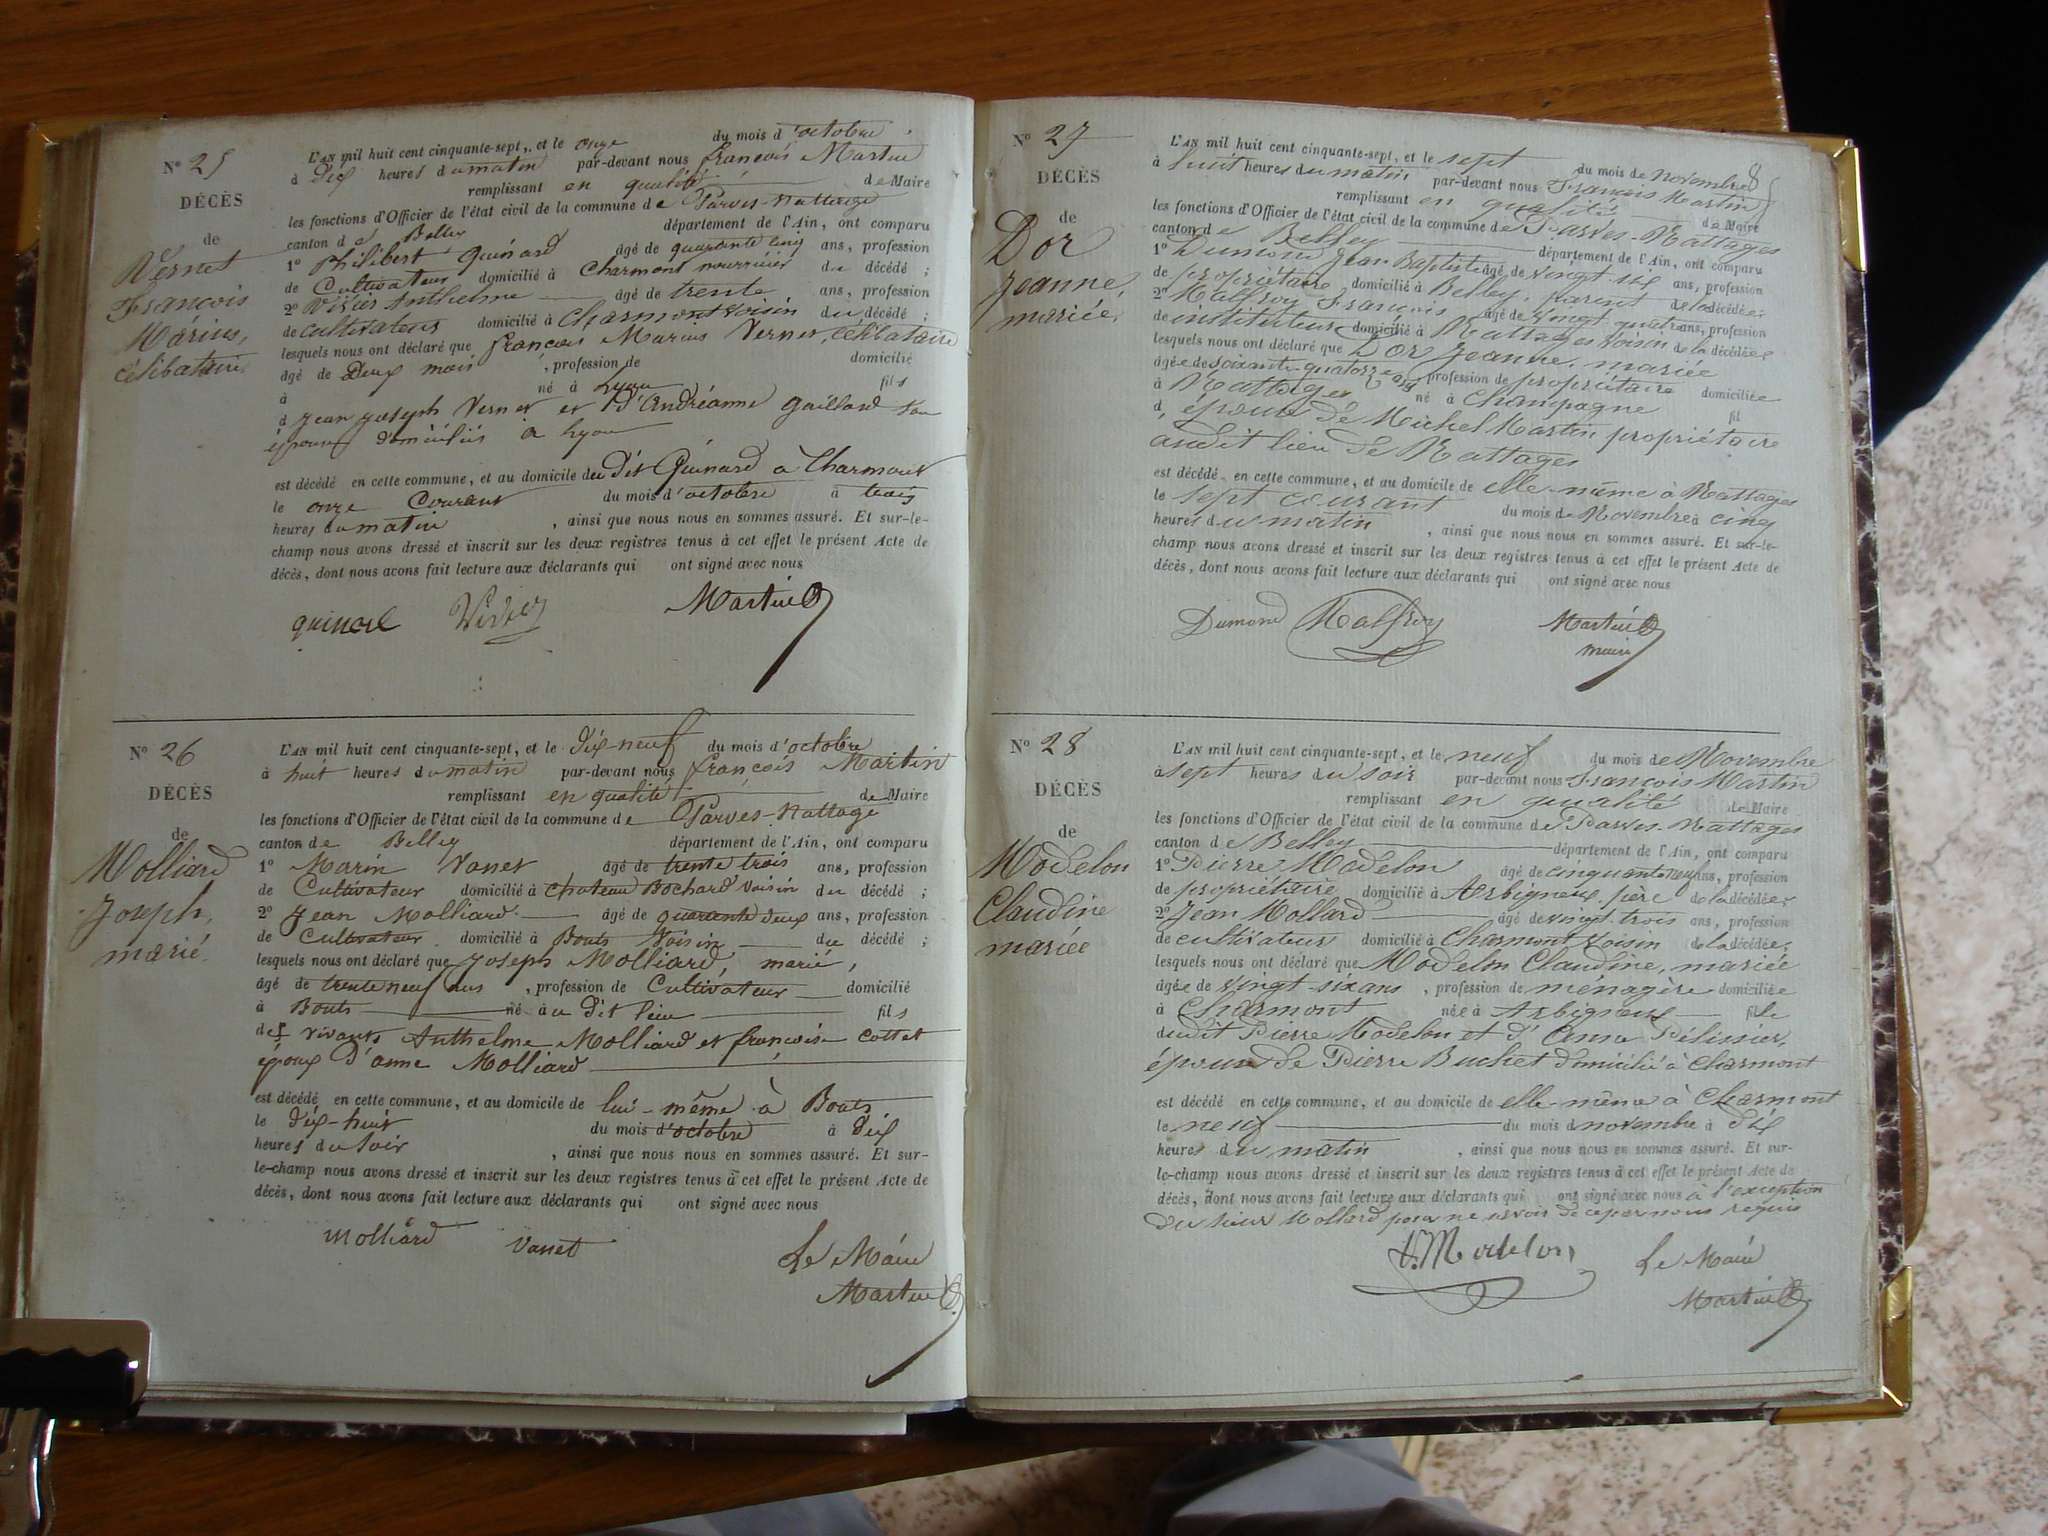 N° 25
DÉCÈS
de
Vernet
François
Marius,
célibataire
L'AN mil huit cent cinquante-sept, et le onze du mois d'octobre
à Dix heures du matin par-devant nous françois Martin
remplissant en qualité de Maire
les fonctions d'Officier de l'état civil de la commune de Parves-Nattage
canton de Belley département de l'Ain, ont comparu
1° Philibert Quinard âgé de quarante cinq ans, profession
de Cultivateur domicilié à Charmont nourricier du décédé ;
2° Anthelme âgé de trente ans, profession
de cultivateur domicilié à Charmont voisin du décédé ;
lesquels nous ont déclaré que françois Marius Vernet, célibataire
âgé de Deux mois , profession de domicilié
à né à Lyon fils
d Jean Joseph Vernet et d'Andréanne Gaillard son
épouse domiciliés à Lyon
est décédé en cette commune, et au domicile du dit Quinard à Charmont
le onze Courant du mois d'octobre à trois
heures du matin , ainsi que nous nous en sommes assuré. Et sur-le-
champ nous avons dressé et inscrit sur les deux registres tenus à cet effet le présent Acte de
décès, dont nous avons fait lecture aux déclarants qui ont signé avec nous
quinard Martin
N° 26
DÉCÈS
de
Molliard
Joseph,
marié.
L'AN mil huit cent cinquante-sept, et le dix-neuf du mois d'octobre
à huit heures du matin par-devant nous françois Martin
remplissant en qualité de Maire
les fonctions d'Officier de l'état civil de la commune de Parves-Nattage
canton de Belley département de l'Ain, ont comparu
1° Marin Vanet âgé de trente trois ans, profession
de Cultivateur domicilié à chateau Bochard voisin du décédé ;
2° Jean Molliard âgé de quarante deux ans, profession
de Cultivateur domicilié à Bouts Voisin du décédé ;
lesquels nous ont déclaré que Joseph Molliard, marié,
âgé de trente neuf ans , profession de Cultivateur domicilié
à Bouts né au dit lieu fils
des vivants Anthelme Molliard et françoise Cottet
époux d'anne Molliard
est décédé en cette commune, et au domicile de lui-même à Bouts
le dix-huit du mois d'octobre à dix
heures du soir , ainsi que nous nous en sommes assuré. Et sur-
le-champ nous avons dressé et inscrit sur les deux registres tenus à cet effet le présent Acte de
décès, dont nous avons fait lecture aux déclarants qui ont signé avec nous
molliard vanet Le Maire
Martin
N° 27
DÉCÈS
de
Dor
Jeanne,
mariée.
L'AN mil huit cent cinquante-sept, et le sept du mois de novembre
à huit heures du matin par-devant nous François Martin
remplissant en qualité de Maire
les fonctions d'Officier de l'état civil de la commune de Parves-Nattages
canton de Belley département de l'Ain, ont comparu
1° Dumond Jean-Baptiste âgé de vingt six ans, profession
de propriétaire domicilié à Belley, parent de la décédée ;
2° Malfroy François âgé de vingt quatre ans, profession
de instituteur domicilié à Nattages voisin de la décédée
lesquels nous ont déclaré que Dor Jeanne, mariée
âgée de soixante-quatorze ans, profession de propriétaire domiciliée
à Nattages né à Champagne fil
d, épouse de Michel Martin, propriétaire
audit lieu de Nattages
est décédé en cette commune, et au domicile de elle-même à Nattages
le sept courant du mois de Novembre à cinq
heures du matin , ainsi que nous nous en sommes assuré. Et sur-le-
champ nous avons dressé et inscrit sur les deux registres tenus à cet effet le présent Acte de
décès, dont nous avons fait lecture aux déclarants qui ont signé avec nous
Dumond Malfroy Martin
maire
N° 28
DÉCÈS
de
Modelon
Claudine
mariée
L'AN mil huit cent cinquante-sept, et le neuf du mois de Novembre
à sept heures du soir par-devant nous François Martin
remplissant en qualité de Maire
les fonctions d'Officier de l'état civil de la commune de Parves-Nattages
canton de Belley département de l'Ain, ont comparu
1° Pierre Modelon âgé de cinquante neuf ans, profession
de propriétaire domicilié à Arbignieux, père de la décédée ;
2° Jean Mollard âgé de vingt-trois ans, profession
de cultivateur domicilié à Charmont voisin de la décédée ;
lesquels nous ont déclaré que Modelon Claudine, mariée
âgée de vingt-six ans , profession de ménagère domiciliée
à Charmont née à Arbignieux fille
dudit Pierre Modelon et d'Anna Pélissier,
épouse de Pierre Buchet domicilié à Charmont
est décédé en cette commune, et au domicile de elle-même à Charmont
le neuf du mois d novembre à dix
heures du matin , ainsi que nous nous en sommes assuré. Et sur-
le-champ nous avons dressé et inscrit sur les deux registres tenus à cet effet le présent Acte de
décès, dont nous avons fait lecture aux déclarants qui ont signé avec nous à l'exception
du sieur Mollard pour ne savoir de ce par nous requis
P. Modelon Le Maire
Martin